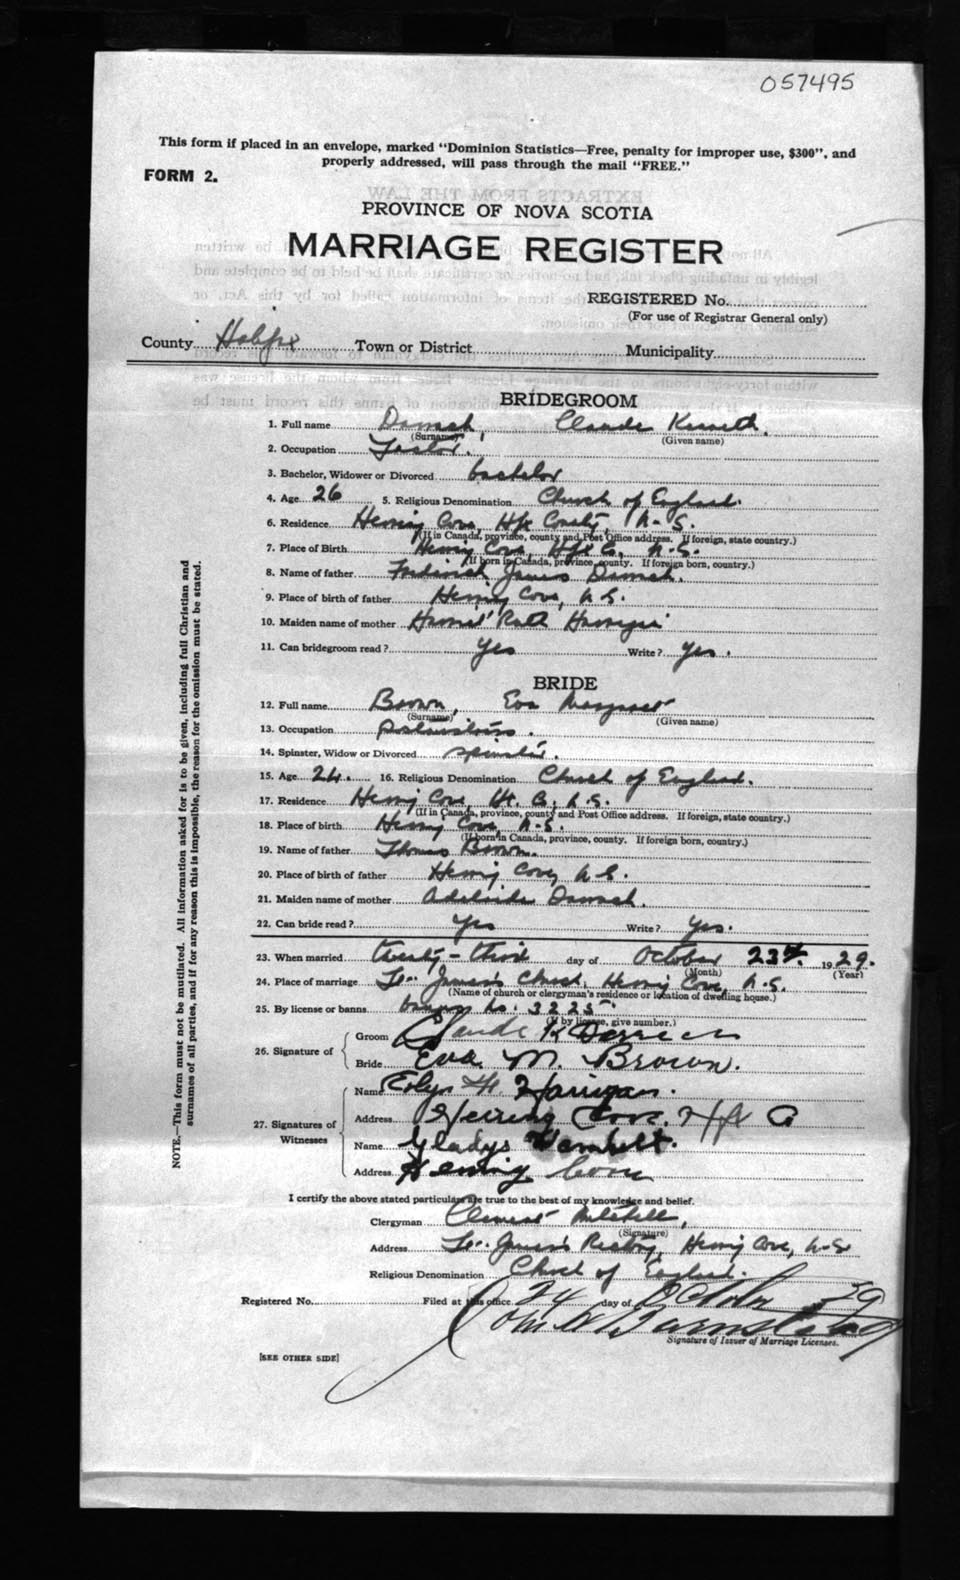 057495
This form if placed in an envelope, marked "Dominion Statistics—Free, penalty for improper use, $300", and
properly addressed, will pass through the mail "FREE."
FORM 2.
PROVINCE OF NOVA SCOTIA
MARRIAGE REGISTER
REGISTERED No.
(For use of Registrar General only)
County Halifax Town or District Municipality
BRIDEGROOM
1. Full name Claude Kenneth.
(Surname) (Given name)
2. Occupation
3. Bachelor, Widower or Divorced bachelor
4. Age 26 5. Religious Denomination Church of England.
6. Residence Herring Cove, Hfx County, N.S.
(If in Canada, province, county and Post Office address. If foreign, state country.)
7. Place of Birth Herring Cove, Hfx Co, N.S.
(If born in Canada, province, county. If foreign born, country.)
8. Name of father James
9. Place of birth of father Herring Cove, N.S.
10. Maiden name of mother Ruth
11. Can bridegroom read? yes Write? yes.
BRIDE
12. Full name Brown, Eva Margaret
(Surname) (Given name)
13. Occupation
14. Spinster, Widow or Divorced spinster.
15. Age 24. 16. Religious Denomination Church of England.
17. Residence Herring Cove, Co, N.S.
(If in Canada, province, county and Post Office address. If foreign, state country.)
18. Place of birth Herring Cove, N.S.
(If born in Canada, province, county. If foreign born, country.)
19. Name of father Thomas Brown.
20. Place of birth of father Herring Cove, N.S.
21. Maiden name of mother Adelaide
22. Can bride read? yes Write? yes.
23. When married twenty-third day of October 23rd. 1929.
(Month) (Year)
24. Place of marriage St. James's Church, Herring Cove, N.S.
(Name of church or clergyman's residence or location of dwelling house.)
25. By license or banns No. 3225
(If by license, give number.)
26. Signature of
Groom Claude K
Bride Eva. M. Brown.
27. Signatures of
Witnesses
Name H.
Address Herring Cove. Hfx Co
Name Gladys
Address Herring Cove
I certify the above stated particulars are true to the best of my knowledge and belief.
Clergyman Clement Mitchell,
(Signature)
Address St. James's Rectory, Herring Cove, N.S.
Religious Denomination Church of England.
Registered No. Filed at this office 24 day of October 29
Signature of Issuer of Marriage Licenses.
[SEE OTHER SIDE]
NOTE.—This form must not be mutilated. All information asked for is to be given, including full Christian and
surnames of all parties, and if for any reason this is impossible, the reason for the omission must be stated.